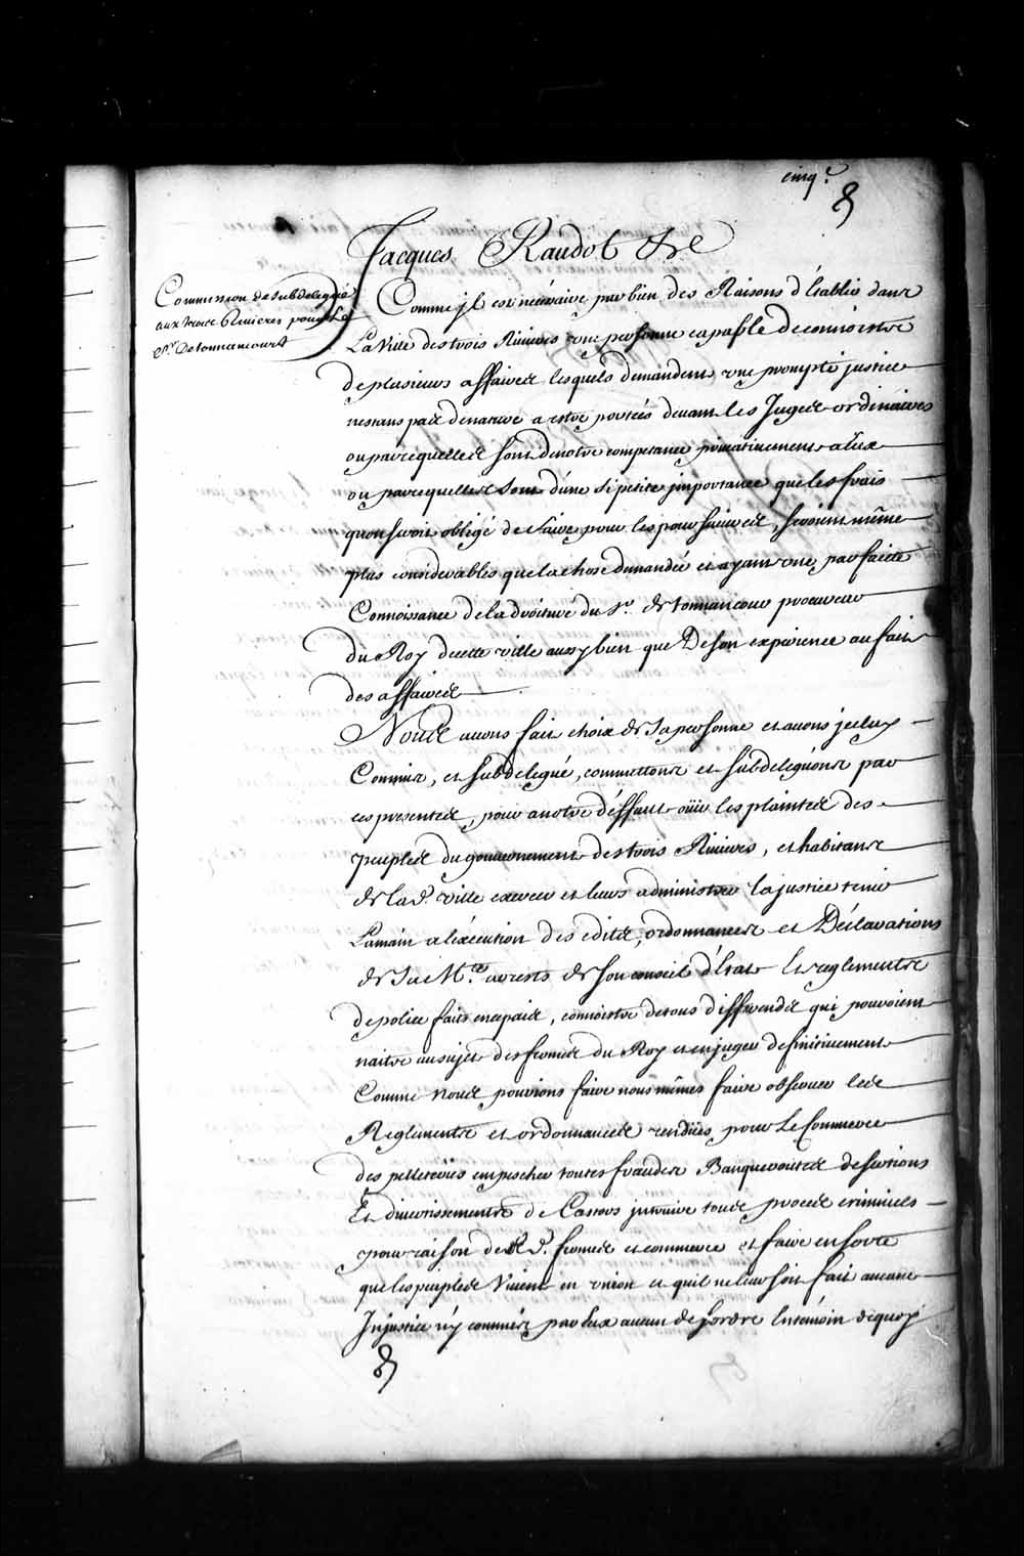 cinq.e
Jacques Raudot &c
Commission de subdelegué
aux trois Rivieres pour le
Sr. De tonnancourt
Comme jl est necessaire par bien des Raisons d'Establir dans
La Ville des trois Rivieres une personne capable de connoistre
de plusieurs affaires lesquels demandent une prompte justice
nestans pas de nature a estre portées devant les Juges ordinaires
ou parcequelles sont de notre competance privativement a Eux
ou parcequelles sont d'une si petite jmportance que les frais
quon seroit obligé de faire pour les poursuivre, seroient même
plus considerables que la chose demandée et ayant une parfaite
Connoissance de la droiture du Sr. de tonnancour procureur
du Roy de cette ville aussy bien que De son experience au fait
des affaires
Nous avons fait choix de sa personne et avons jceluy
Commis, et subdelegué, commettons et subdeleguons par
ces presentes, pour a notre déffaut oüir les plaintes des
peuples du gouvernement des trois Rivieres, et habitans
de la d. ville et leurs administrer la justice tenir
Lamain a l'éxécution des edits, ordonnances et Déclarations
de Sa Mté. arrests de son conseil d'Etat Et reglements
de police faits en ce pais, connoistre de tous differends qui pouroient
naitre au sujet des fermes du Roy et en juger definitivement
Comme nous pourions faire nous mêmes faire observer les
Reglements et ordonnances rendües pour Le Commerce
des pelleteries empescher toutes fraudes Banqueroutes
Et divertissements de Castors jnstruire tous procés criminels
pour raison des d. fermes et commerce et faire en sorte
que les peuples Vivent en union et quil ne leur soit fait aucune
Injustice n'y commis par Eux aucun desordre En témoin dequoy